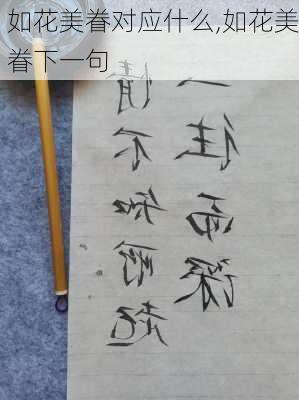 如花美眷对应什么,如花美
眷下一句
情不知所起
一往而深